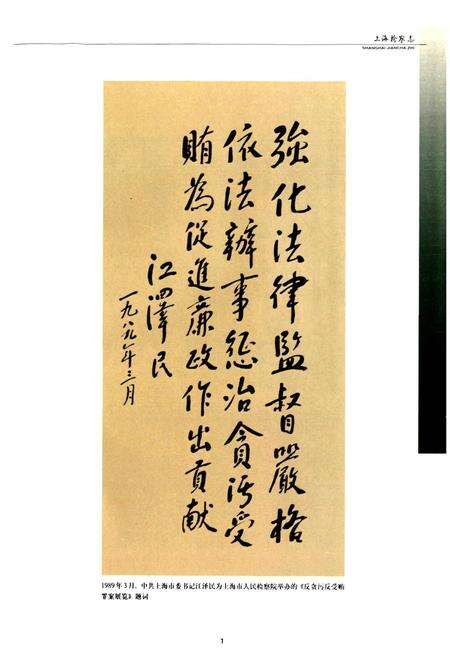 上海检察志
SHANGHAI JIANCHA ZHI
強化法律監督嚴格
依法辦事惩治貪污受
賄為促進廉政作出貢献
江澤民
一九八九年三月
1989年3月，中共上海市委书记江泽民为上海市人民检察院举办的《反贪污反受贿
罪案展览》题词
1